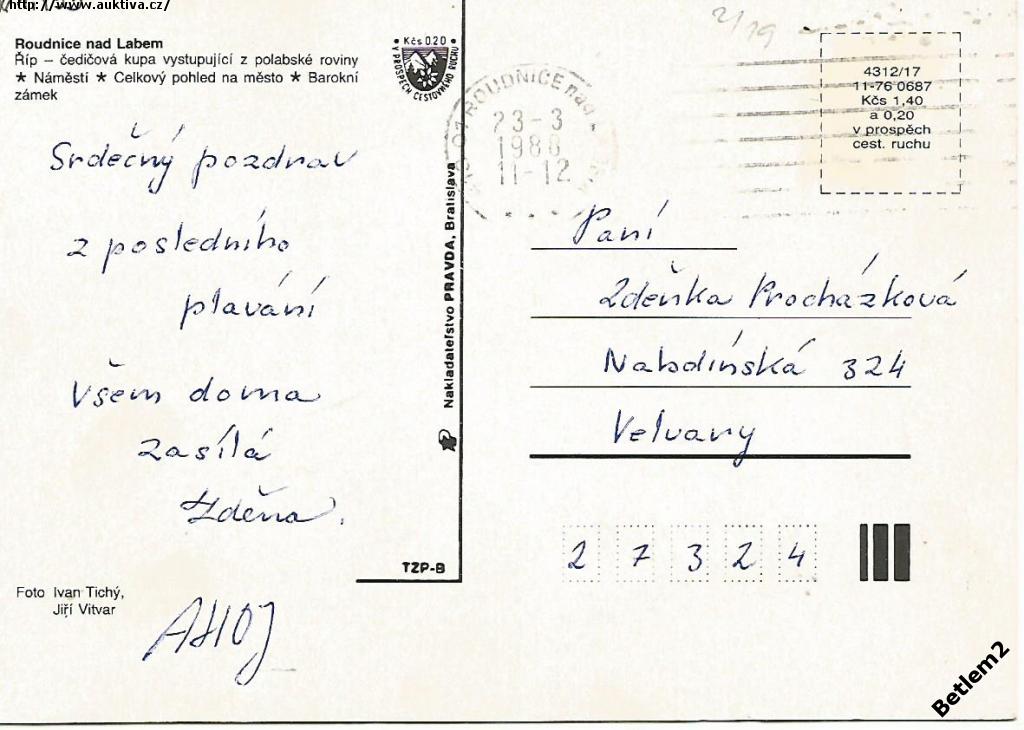 http://www.auktiva.cz/
Roudnice nad Labem
Říp – čedičová kupa vystupující z polabské roviny
★ Náměstí ★ Celkový pohled na město ★ Barokní
zámek
• Kčs 0.20 •
V PROSPĚCH CESTOVNÍHO RUCHU
Srdečný pozdrav
z posledního
plavání
Všem doma
zasílá
Zděna.
AHOJ
Foto Ivan Tichý,
Jiří Vitvar
Nakladateľstvo PRAVDA, Bratislava
TZP-B
ROUDNICE nad L
23-3
1988
11-12
2/19
4312/17
11-76 0687
Kčs 1,40
a 0,20
v prospěch
cest. ruchu
Paní
Zdeňka Procházková
Nabdínská 324
Velvary
2 7 3 2 4
Betlem2